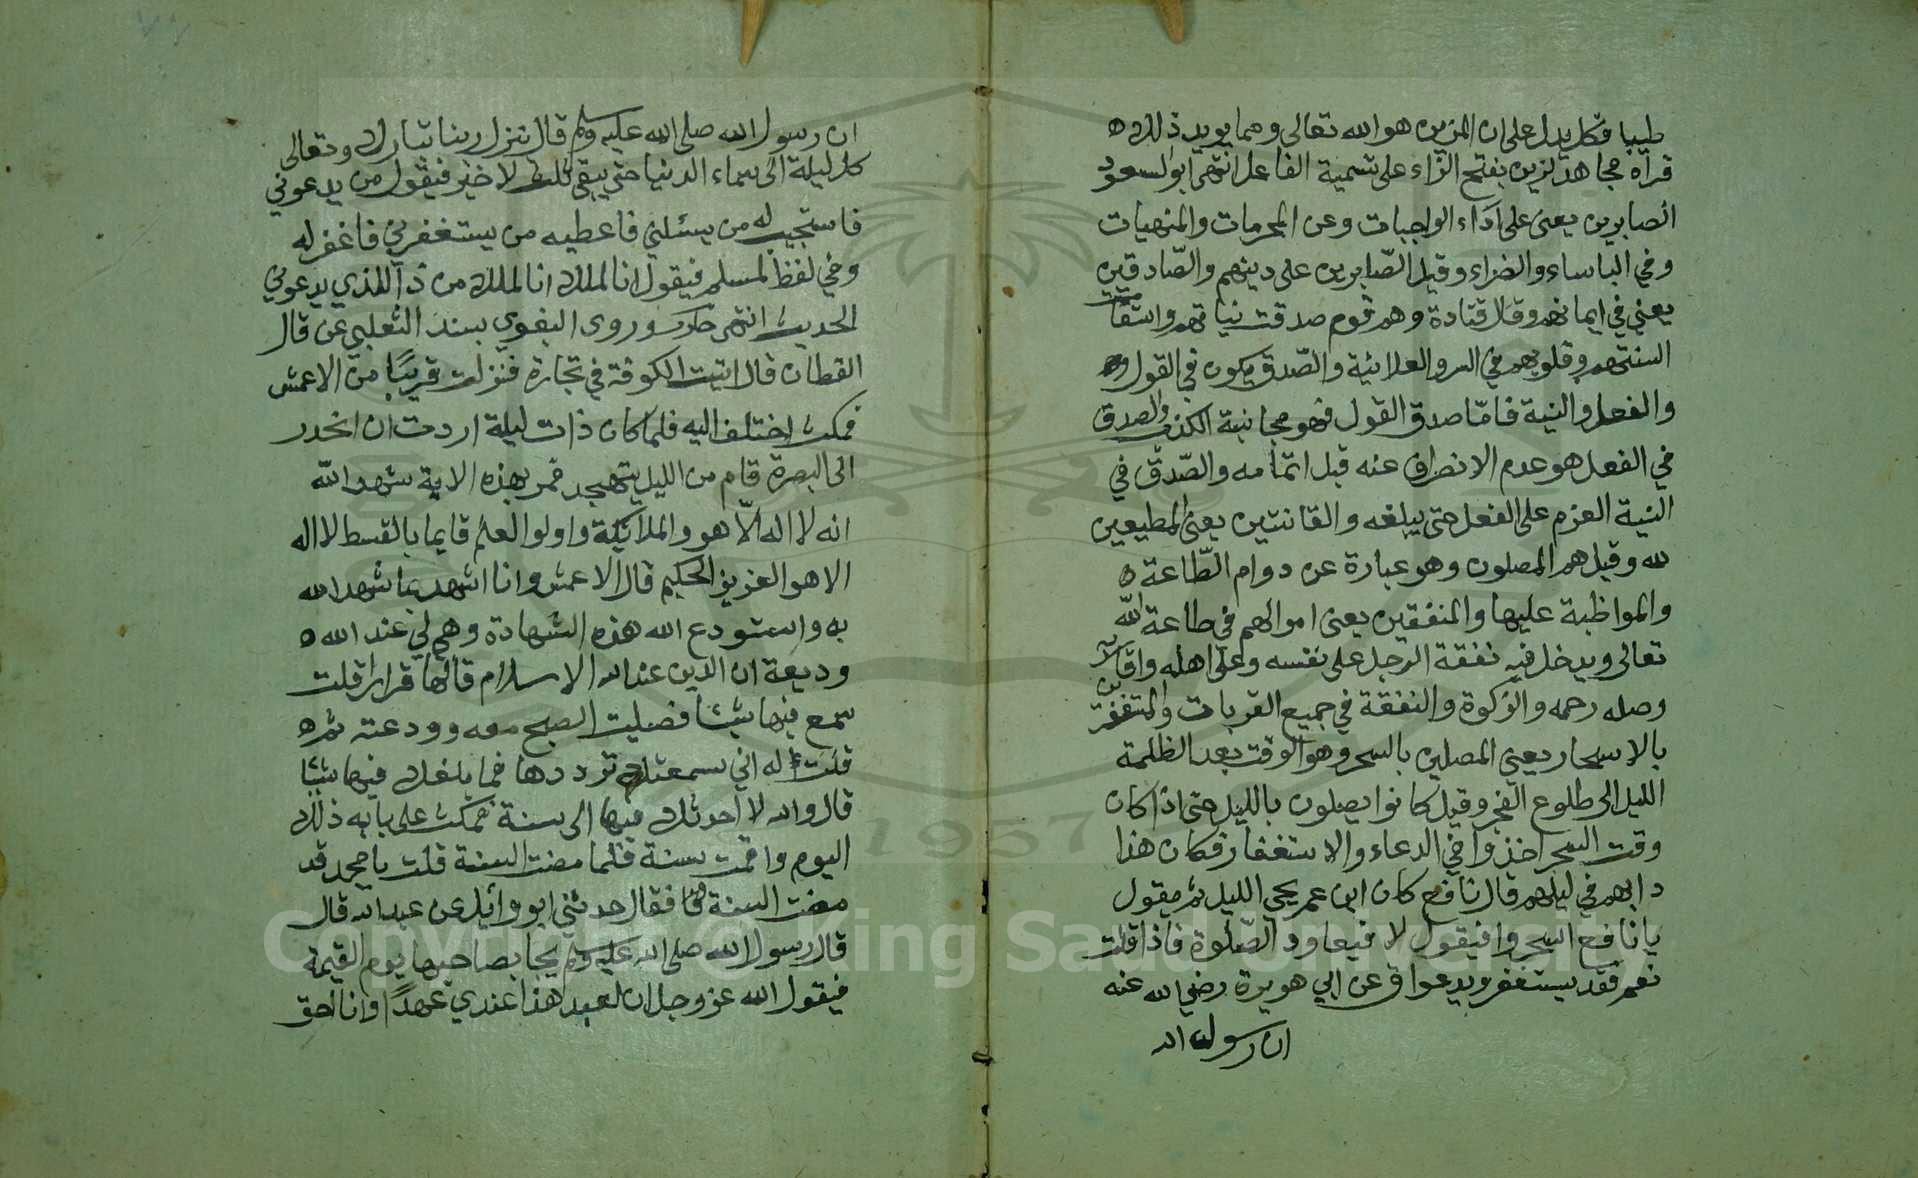 طيبا فكل يدل على ان المزين هو الله تعالى ومما يويد ذلك ه
قراه مجاهد لزين بفتح الزاء على تسمية الفاعل انتهى ابو السعود
الصابرين يعنى على اداء الواجبات وعن المحرمات والمنهيات
وفي الباساء والضراء وقيل الصّابرين على دينهم والصّادقين
يعني في ايمانهم وقال قتادة وهم قوم صدقت نياتهم واستقامت
السنتهم وقلوبهم في السر والعلانية والصّدق يكون في القول
والفعل والنية فامّا صدق القول فهو مجانبة الكذب والصدق
في الفعل هو عدم الانصراف عنه قبل اتمامه والصّدق في
النية العزم على الفعل حتى يبلغه والقانتين يعنى المطيعين
لله وقيل هم المصلون وهو عبارة عن دوام الطّاعة ه
والمواظبة عليها والمنفقين يعنى اموالهم في طاعة الله
تعالى ويدخل فيه نفقة الرجل على نفسه وعلى اهله واقاربه
وصله رحمه والزكوة والنفقة في جميع القربات والمستغفرين
بالاسحار يعني المصلين بالسحر وهو الوقت بعد الظلمة
الليل الى طلوع الفجر وقيل كانوا يصلون بالليل حتى اذا كان
وقت السحر اخذوا في الدعاء والاستغفار فكان هذا
دابهم في ليلهم قال نافع كان ابن عمر يحي الليل ثم يقول
يا نافع اسحروا فيقول لا فيعاود الصّلوة فاذا قلت
نعم فقد يستغفر ويدعوا ق عن ابي هويرة رضي الله عنه
ان رسول الله
ان رسول الله صلى الله عليه وسلم قال ينزل ربنا تبارك وتعالى
كل ليلة الى سماء الدنيا حتى يبقى ثلث الاخير فيقول من يدعوني
فاستجيب له من يسئلني فاعطيه من يستغفرني فاغفر له
وفي لفظ لمسلم فيقول انا الملك انا الملك من ذا الذي يدعوني
الحديث انتهى وروى البغوى بسند الثعلبي عن قال
القطان قال اتيت الكوفة في تجارة فنزلت قريبًا من الاعمش
فمكث اختلف اليه فلما كان ذات ليلة اردت ان انحدر
الى البصرة قام من الليل يتهجد فمر بهذه الاية شهد الله
انه لا اله الّا هو والملائكة واولوا العلم قايما بالقسط لا اله
الا هو العزيز الحكيم قال الاعمش وانا اشهد بما شهد الله
به واستودع الله هذه الشهادة وهى لي عند الله ه
وديعة ان الدين عند الله الاسلام قالها مرارا قلت
سمع فيها شيئا فصليت الصبح معه وودعته ثم ه
قلت له اني سمعتك ترددها فما بلغك فيها شيئا
قال والله لا احدثك فيها الى سنة فمكث على بابه ذلك
اليوم واقمت سنة فلما مضت السنة قلت يا محمد قد
مضت السنة فقال حدثني ابو وائل عن عبد الله قال
قال رسول الله صلى الله عليه وسلم يجا بصاحبها يوم القيمة
فيقول الله عز وجل ان لعبد هذا عندي عهدًا وانا احق
Copyright © King Saud University
1957